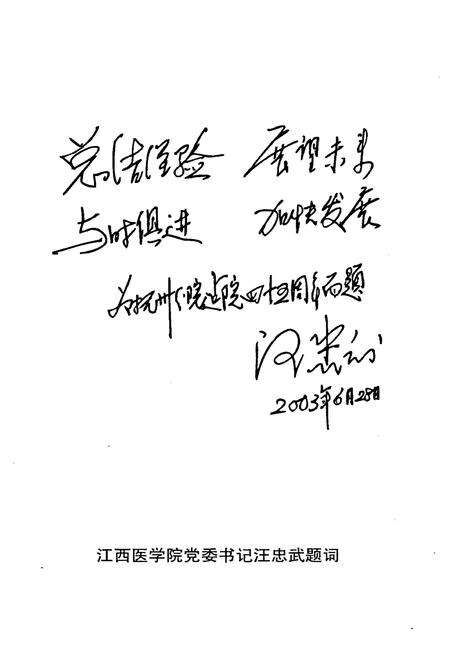 总结经验 展望未来
与时俱进 加快发展
为抚州分院建院四十五周年而题
汪忠武
2003年6月28日
江西医学院党委书记汪忠武题词